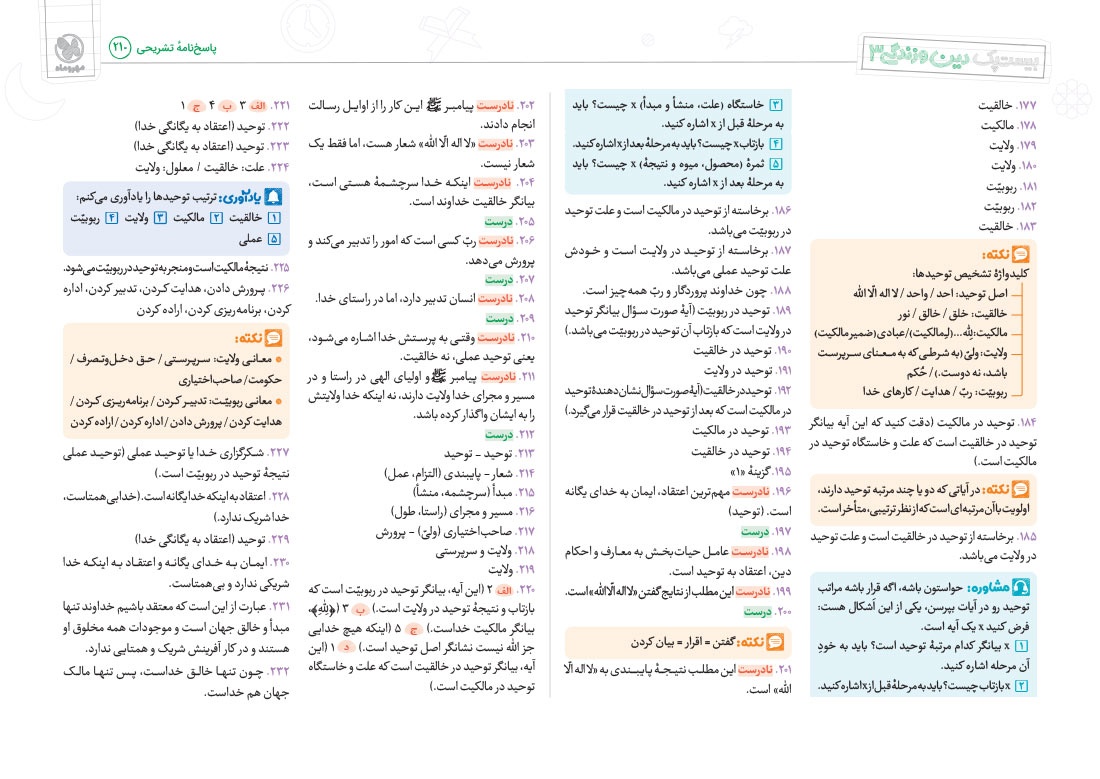 بیست‌پک دین و زندگی ۳
پاسخ‌نامهٔ تشریحی ۲۱۰
مهروماه
۱۷۷. خالقیت
۱۷۸. مالکیت
۱۷۹. ولایت
۱۸۰. ولایت
۱۸۱. ربوبیّت
۱۸۲. ربوبیّت
۱۸۳. خالقیت
نکته:
کلیدواژهٔ تشخیص توحیدها:
اصل توحید: احد / واحد / لا اله الّا الله
خالقیت: خلق / خالق / نور
مالکیت: لِلّه... (لِـ مالکیت) / عبادی (ضمیر مالکیت)
ولایت: ولیّ (به شرطی که به معنای سرپرست
باشد، نه دوست.) / حُکم
ربوبیّت: ربّ / هدایت / کارهای خدا
۱۸۴. توحید در مالکیت (دقت کنید که این آیه بیانگر
توحید در خالقیت است که علت و خاستگاه توحید در
مالکیت است.)
نکته: در آیاتی که دو یا چند مرتبه توحید دارند،
اولویت با آن مرتبه‌ای است که از نظر ترتیبی، متأخر است.
۱۸۵. برخاسته از توحید در خالقیت است و علت توحید
در ولایت می‌باشد.
مشاوره: حواستون باشه، اگه قرار باشه مراتب
توحید رو در آیات بپرسن، یکی از این اَشکال هست:
فرض کنید x یک آیه است.
۱ x بیانگر کدام مرتبهٔ توحید است؟ باید به خودِ
آن مرحله اشاره کنید.
۲ x بازتاب چیست؟ باید به مرحلهٔ قبل از x اشاره کنید.
۳ خاستگاه (علت، منشأ و مبدأ) x چیست؟ باید
به مرحلهٔ قبل از x اشاره کنید.
۴ بازتاب x چیست؟ باید به مرحلهٔ بعد از x اشاره کنید.
۵ ثمرهٔ (محصول، میوه و نتیجهٔ) x چیست؟ باید
به مرحلهٔ بعد از x اشاره کنید.
۱۸۶. برخاسته از توحید در مالکیت است و علت توحید
در ربوبیّت می‌باشد.
۱۸۷. برخاسته از توحید در ولایت است و خودش
علت توحید عملی می‌باشد.
۱۸۸. چون خداوند پروردگار و ربّ همه‌چیز است.
۱۸۹. توحید در ربوبیّت (آیهٔ صورت سؤال بیانگر توحید
در ولایت است که بازتاب آن توحید در ربوبیّت می‌باشد.)
۱۹۰. توحید در خالقیت
۱۹۱. توحید در ولایت
۱۹۲. توحید در خالقیت (آیهٔ صورت سؤال نشان‌دهندهٔ توحید
در مالکیت است که بعد از توحید در خالقیت قرار می‌گیرد.)
۱۹۳. توحید در مالکیت
۱۹۴. توحید در خالقیت
۱۹۵. گزینهٔ «۱»
۱۹۶. نادرست مهم‌ترین اعتقاد، ایمان به خدای یگانه
است. (توحید)
۱۹۷. درست
۱۹۸. نادرست عامل حیات‌بخش به معارف و احکام
دین، اعتقاد به توحید است.
۱۹۹. نادرست این مطلب از نتایج گفتن «لا اله الّا الله» است.
۲۰۰. درست
نکته: گفتن = اقرار = بیان کردن
۲۰۱. نادرست این مطلب نتیجهٔ پایبندی به «لا اله الّا
الله» است.
۲۰۲. نادرست پیامبر ﷺ این کار را از اوایل رسالت
انجام دادند.
۲۰۳. نادرست «لا اله الّا الله» شعار هست، اما فقط یک
شعار نیست.
۲۰۴. نادرست اینکه خدا سرچشمهٔ هستی است،
بیانگر خالقیت خداوند است.
۲۰۵. درست
۲۰۶. نادرست ربّ کسی است که امور را تدبیر می‌کند و
پرورش می‌دهد.
۲۰۷. درست
۲۰۸. نادرست انسان تدبیر دارد، اما در راستای خدا.
۲۰۹. درست
۲۱۰. نادرست وقتی به پرستش خدا اشاره می‌شود،
یعنی توحید عملی، نه خالقیت.
۲۱۱. نادرست پیامبر ﷺ و اولیای الهی در راستا و در
مسیر و مجرای خدا ولایت دارند، نه اینکه خدا ولایتش
را به ایشان واگذار کرده باشد.
۲۱۲. درست
۲۱۳. توحید - توحید
۲۱۴. شعار - پایبندی (التزام، عمل)
۲۱۵. مبدأ (سرچشمه، منشأ)
۲۱۶. مسیر و مجرای (راستا، طول)
۲۱۷. صاحب‌اختیاری (ولیّ) - پرورش
۲۱۸. ولایت و سرپرستی
۲۱۹. ولایت
۲۲۰. الف ۲ (این آیه، بیانگر توحید در ربوبیّت است که
بازتاب و نتیجهٔ توحید در ولایت است.) ب ۳ (﴿لِلّهِ﴾،
بیانگر مالکیت خداست.) ج ۵ (اینکه هیچ خدایی
جز الله نیست نشانگر اصل توحید است.) د ۱ (این
آیه، بیانگر توحید در خالقیت است که علت و خاستگاه
توحید در مالکیت است.)
۲۲۱. الف ۳ ب ۴ ج ۱
۲۲۲. توحید (اعتقاد به یگانگی خدا)
۲۲۳. توحید (اعتقاد به یگانگی خدا)
۲۲۴. علت: خالقیت / معلول: ولایت
یادآوری: ترتیب توحیدها را یادآوری می‌کنم:
۱ خالقیت ۲ مالکیت ۳ ولایت ۴ ربوبیّت
۵ عملی
۲۲۵. نتیجهٔ مالکیت است و منجر به توحید در ربوبیّت می‌شود.
۲۲۶. پرورش دادن، هدایت کردن، تدبیر کردن، اداره
کردن، برنامه‌ریزی کردن، اراده کردن
نکته:
● معانی ولایت: سرپرستی / حق دخل‌وتصرف /
حکومت / صاحب‌اختیاری
● معانی ربوبیّت: تدبیر کردن / برنامه‌ریزی کردن /
هدایت کردن / پرورش دادن / اداره کردن / اراده کردن
۲۲۷. شکرگزاری خدا یا توحید عملی (توحید عملی
نتیجهٔ توحید در ربوبیّت است.)
۲۲۸. اعتقاد به اینکه خدا یگانه است. (خدا بی‌همتاست،
خدا شریک ندارد.)
۲۲۹. توحید (اعتقاد به یگانگی خدا)
۲۳۰. ایمان به خدای یگانه و اعتقاد به اینکه خدا
شریکی ندارد و بی‌همتاست.
۲۳۱. عبارت از این است که معتقد باشیم خداوند تنها
مبدأ و خالق جهان است و موجودات همه مخلوق او
هستند و در کار آفرینش شریک و همتایی ندارد.
۲۳۲. چون تنها خالق خداست، پس تنها مالک
جهان هم خداست.